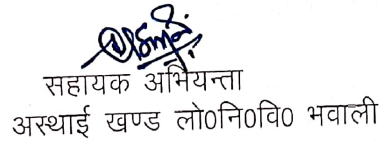 सहायक अभियन्ता
अस्थाई खण्ड लो0नि0वि0 भवाली